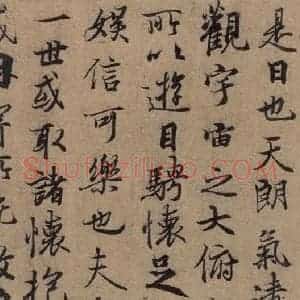 是日也天朗氣清
觀宇宙之大俯
所以遊目騁懷足
娛信可樂也夫
一世或取諸懷抱